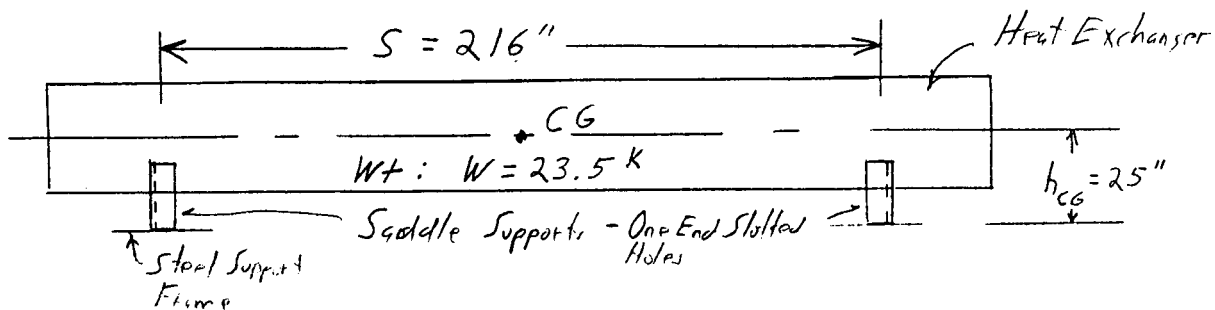 S = 216"
Heat Exchanger
CG
Wt: W = 23.5 K
hCG = 25"
Saddle Supports - One End Slotted
Holes
Steel Support
Frame